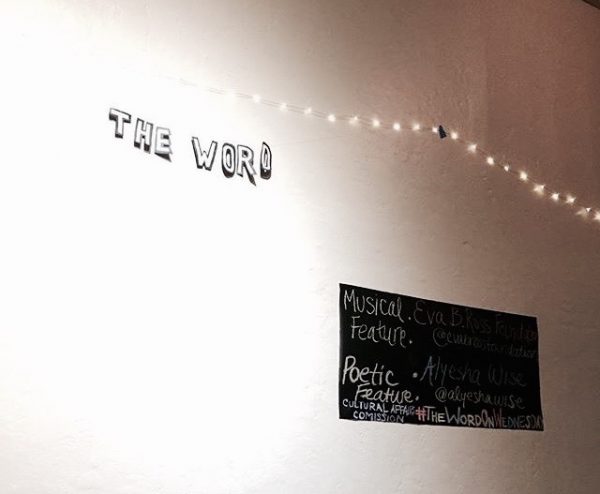 THE WORD
Musical. Eva B. Ross Foundation
Feature. @evabrossfoundation
Poetic • Alyesha Wise
Feature. @alyeshawise
CULTURAL AFFAIRS
COMISSION #THEWORDONWEDNESDAY